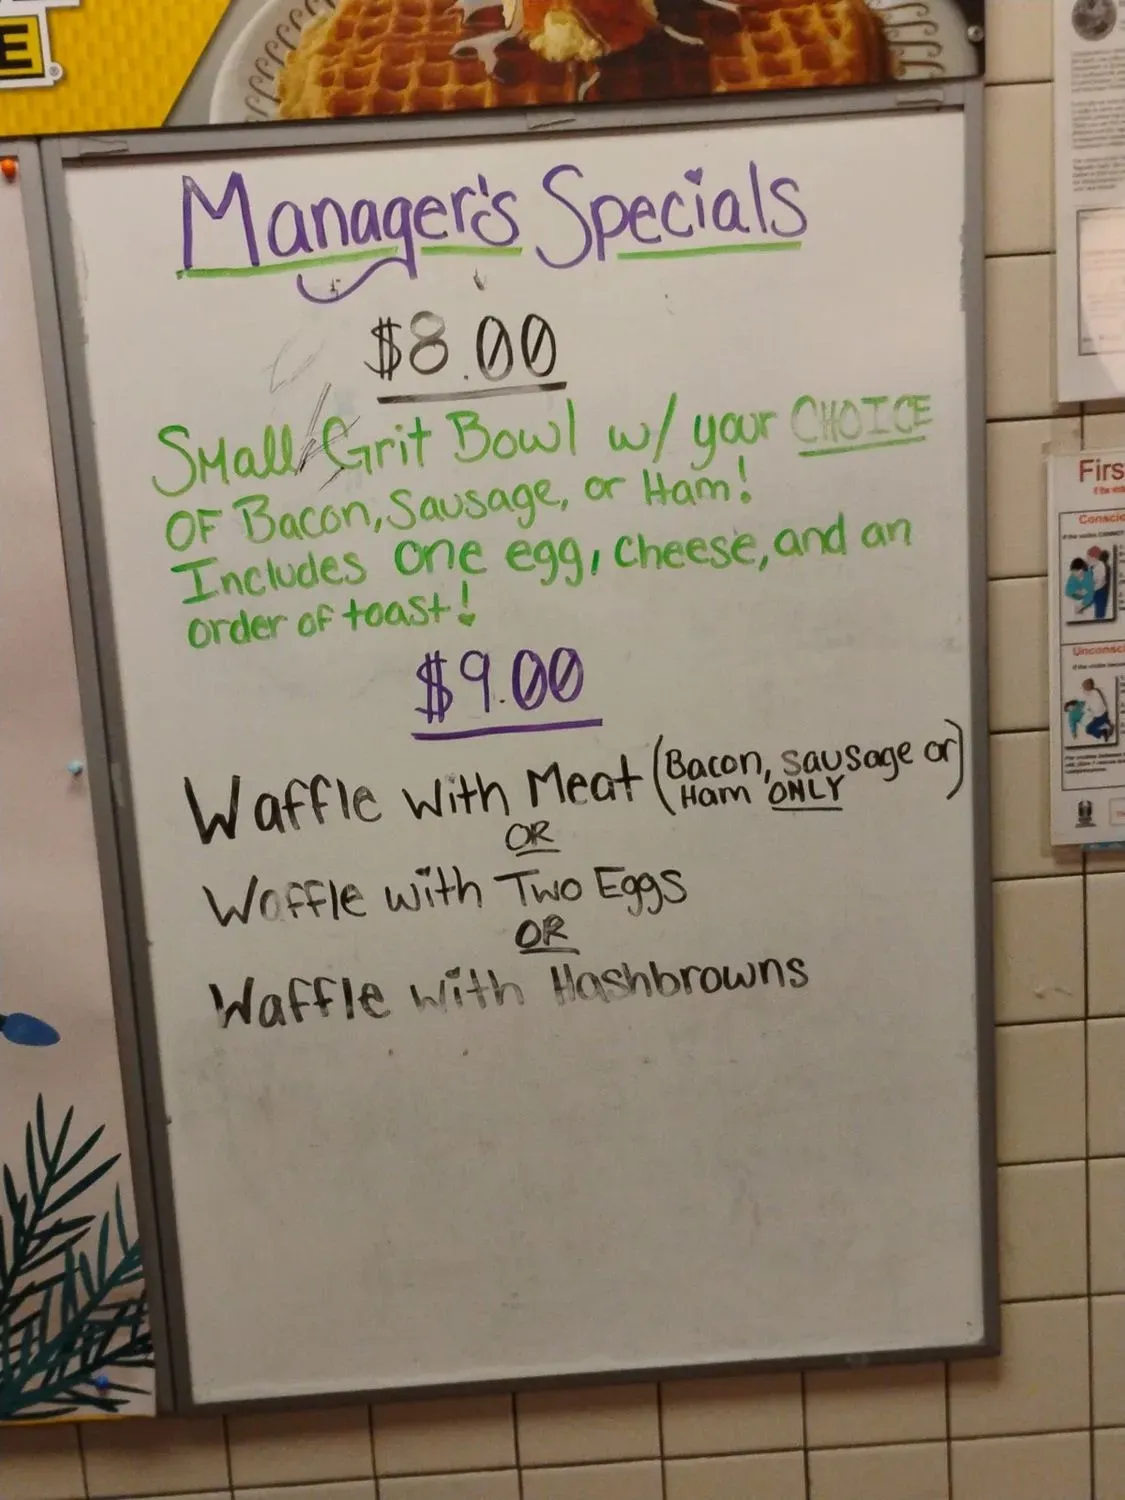 E
Manager's Specials
$8.00
Small Grit Bowl w/ your CHOICE
OF Bacon, Sausage, or Ham!
Includes one egg, cheese, and an
order of toast!
$9.00
Waffle with Meat (Bacon, sausage or
Ham ONLY)
OR
Waffle with Two Eggs
OR
Waffle with Hashbrowns
Firs
Conscio
Unconsci